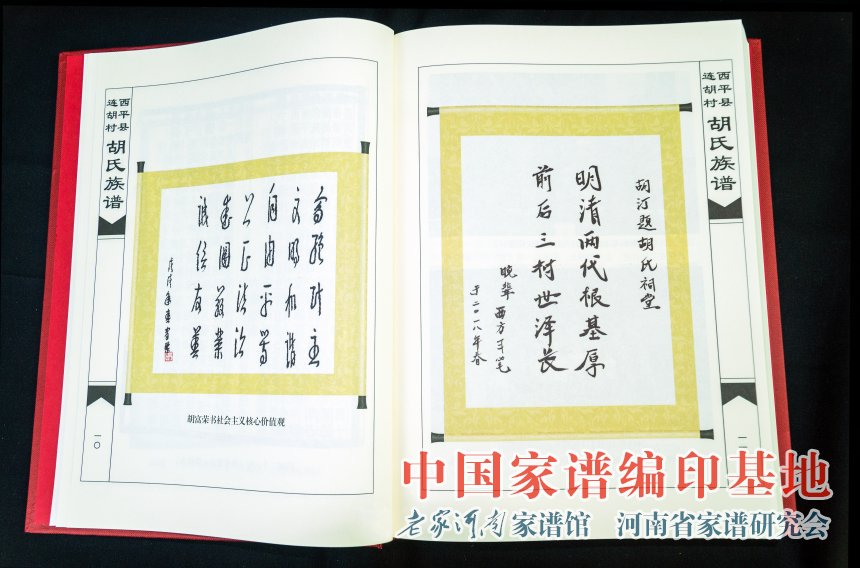 西平县
连胡村
胡氏族谱
富强民主
文明和谐
自由平等
公正法治
爱国敬业
诚信友善
胡富荣书社会主义核心价值观
一〇
西平县
连胡村
胡氏族谱
胡汀题胡氏祠堂
明清两代根基厚
前后三村世泽长
晚辈 西方
于二〇一八年春
中国家谱编印基地
老家河南家谱馆 河南省家谱研究会